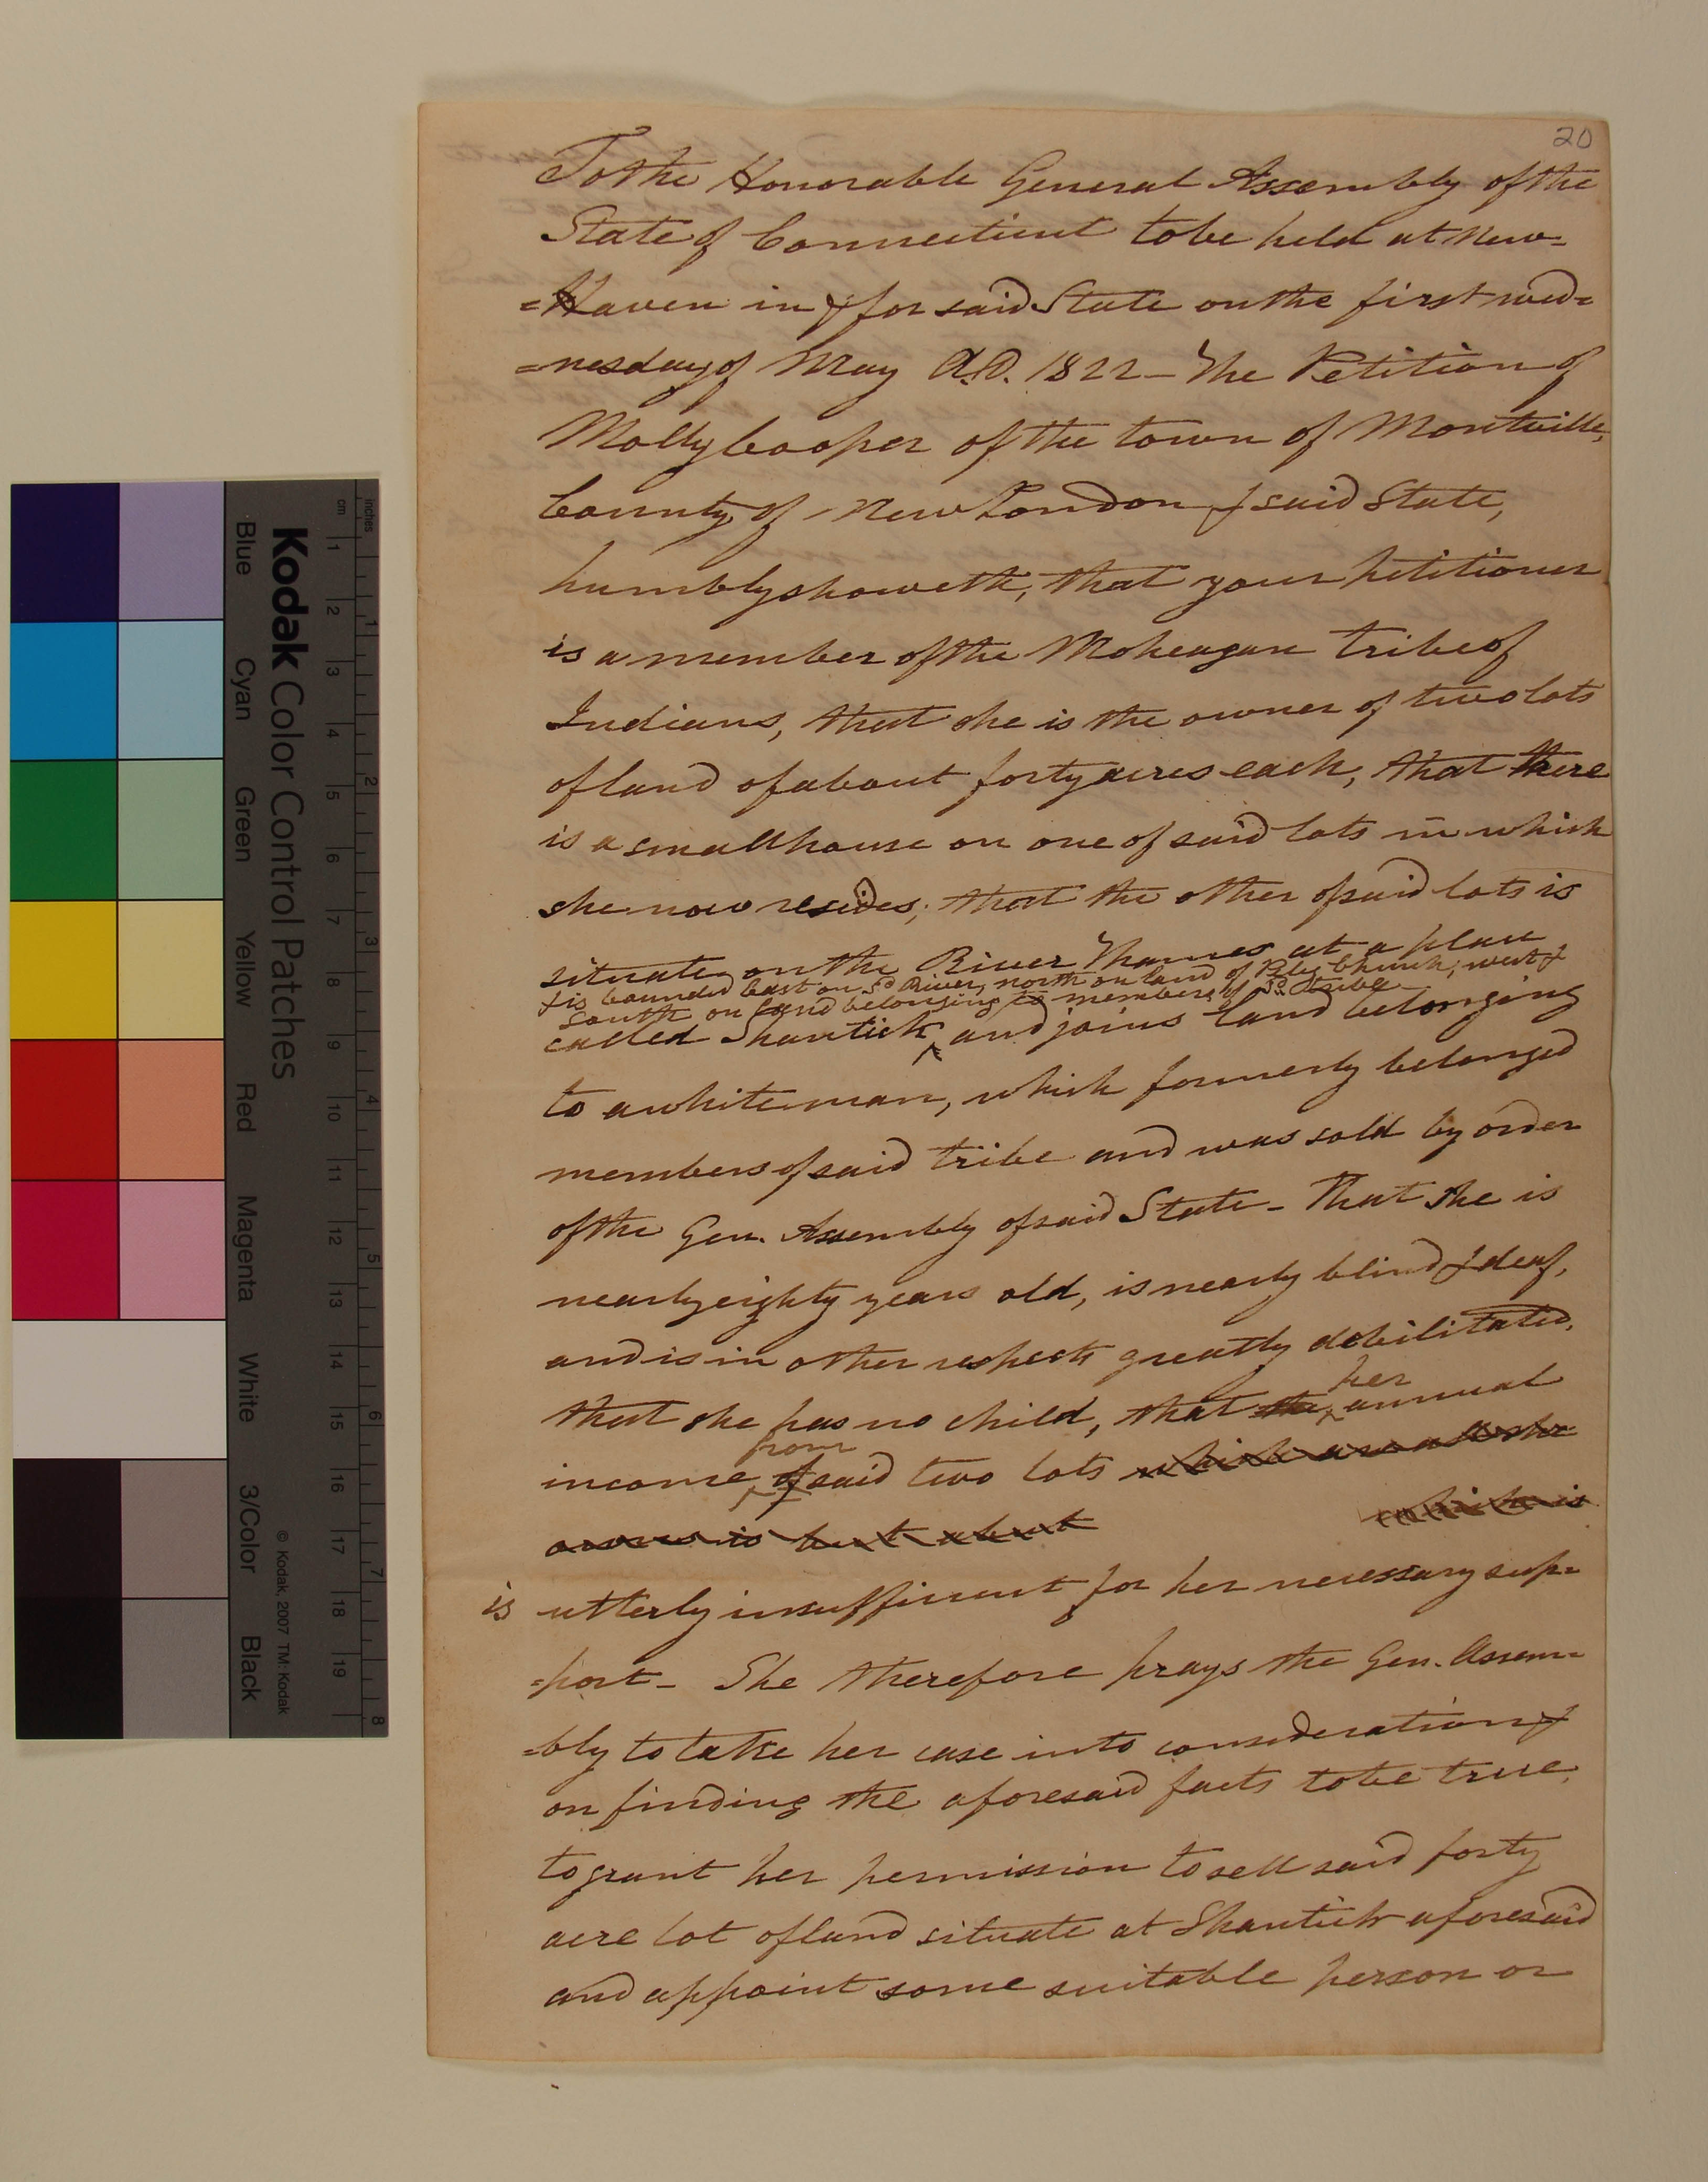 20
To the Honorable General Assembly of the
State of Connecticut to be held at New=
=Haven in & for said State on the first wed=
=nesday of May A.D. 1822 – The Petition of
Molly Cooper of the town of Montville,
County of New London & said State,
humbly showeth, that your petitioner
is a member of the Moheagan tribe of
Indians, that she is the owner of two lots
of land of about forty acres each, that there
is a small house on one of said lots in which
she now resides; that the other of said lots is
situate on the River Thames at a place
& is bounded East on sd River, north on land of Church; west &
south on land belonging to members of sd tribe
called Shantick ‸ and joins land belonging
to a white man, which formerly belonged
members of said tribe and was sold by order
of the Gen. Assembly of said State – That she is
nearly eighty years old, is nearly blind & deaf,
and is in other respects greatly debilitated,
her
that she has no child, that the ‸ annual
from
income ‸ of said two lots which are all she
owns is but about which is
is utterly insufficient for her necessary sup=
=port – She therefore prays the Gen. Assem=
=bly to take her case into consideration &
on finding the aforesaid facts to be true,
to grant her permission to sell said forty
acre lot of land situate at Shantick aforesaid
and appoint some suitable person or
Kodak Color Control Patches
© Kodak, 2007 TM: Kodak
Blue
Cyan
Green
Yellow
Red
Magenta
White
3/Color
Black
inches
1
2
3
4
5
6
7
8
cm
1
2
3
4
5
6
7
8
9
10
11
12
13
14
15
16
17
18
19